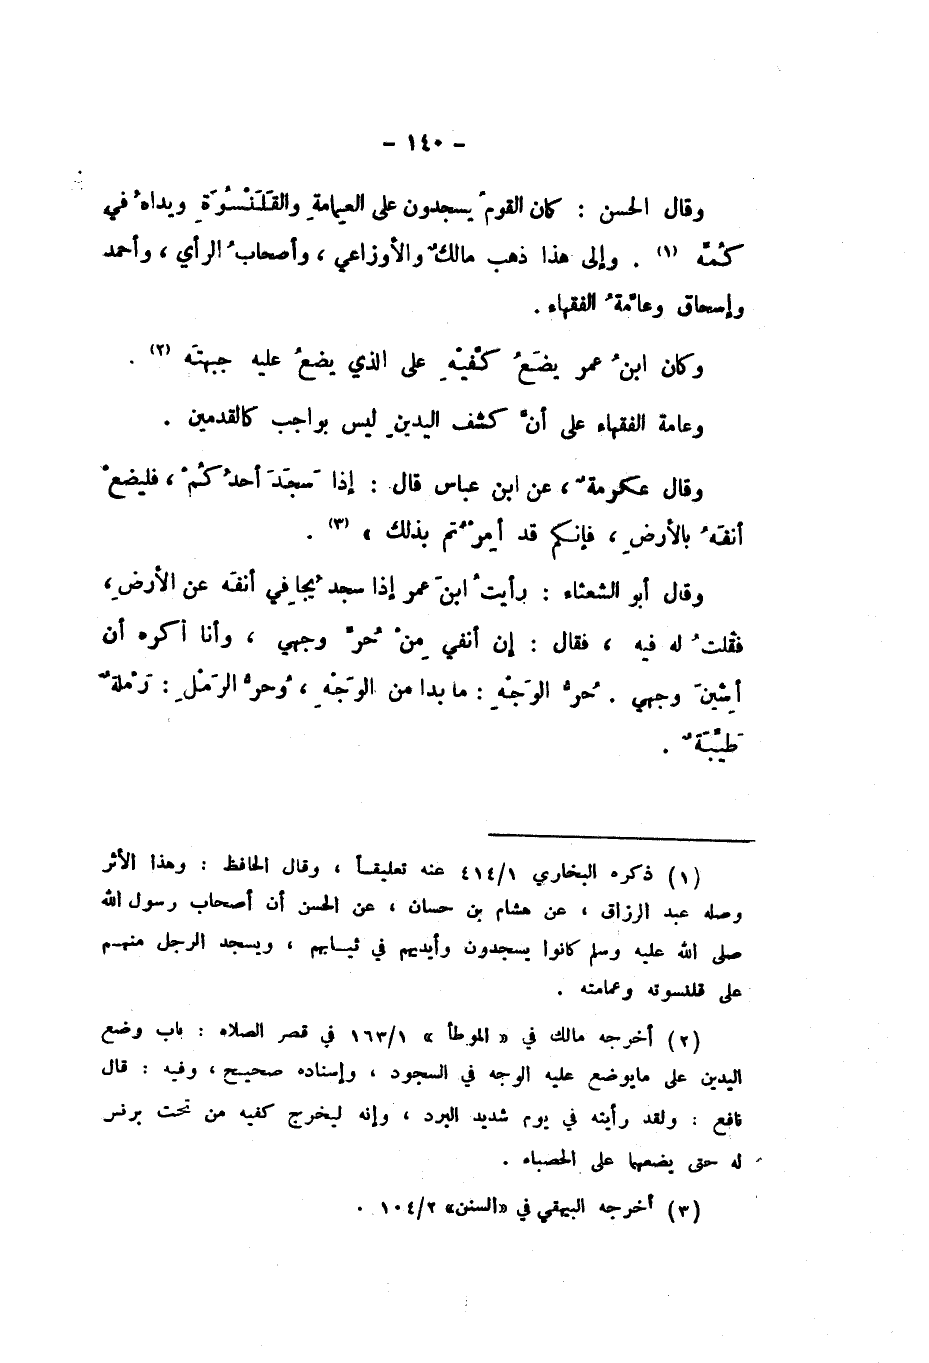 - ١٤٠ -
وقال الحسن : كان القومُ يسجدون على العِمامةِ والقَلَنْسُوَةِ ويداهُ في
كُمِّه (١) . وإلى هذا ذهب مالكٌ والأوزاعي ، وأصحابُ الرأي ، وأحمد
وإسحاق وعامَّةُ الفقهاء .
وكان ابنُ عمر يضَعُ كَفَّيْهِ على الذي يضعُ عليه جبهتَه (٢) .
وعامة الفقهاء على أنَّ كشف اليدينِ ليس بواجب كالقدمين .
وقال عكرمةٌ ، عن ابن عباس قال : إذا سَجَدَ أحدُكُمْ ، فليضعْ
أنفَهُ بالأرضِ ، فإنكم قد أُمِرْتُم بذلك » (٣) .
وقال أبو الشعثاء : رأيتُ ابنَ عمر إذا سجد يُجافي أنفَه عن الأرضِ ،
فقُلتُ له فيه ، فقال : إن أنفي مِنْ حُرِّ وجهي ، وأنا أكره أن
أَشِينَ وجهي . حُرُّ الوَجْهِ : ما بدا من الوَجْهِ ، وحُرُّ الرَمْلِ : رَمْلةٌ
طَيِّبَةٌ .
(١) ذكره البخاري ٤١٤/١ عنه تعليقاً ، وقال الحافظ : وهذا الأثر
وصله عبد الرزاق ، عن هشام بن حسان ، عن الحسن أن أصحاب رسول الله
صلى الله عليه وسلم كانوا يسجدون وأيديهم في ثيابهم ، ويسجد الرجل منهم
على قلنسوته وعمامته .
(٢) أخرجه مالك في « الموطأ » ١٦٣/١ في قصر الصلاه : باب وضع
اليدين على مايوضع عليه الوجه في السجود ، وإسناده صحيح ، وفيه : قال
نافع : ولقد رأيته في يوم شديد البرد ، وإنه ليخرج كفيه من تحت برنس
له حتى يضعهما على الحصباء .
(٣) أخرجه البيهقي في «السنن» ١٠٤/٢ .